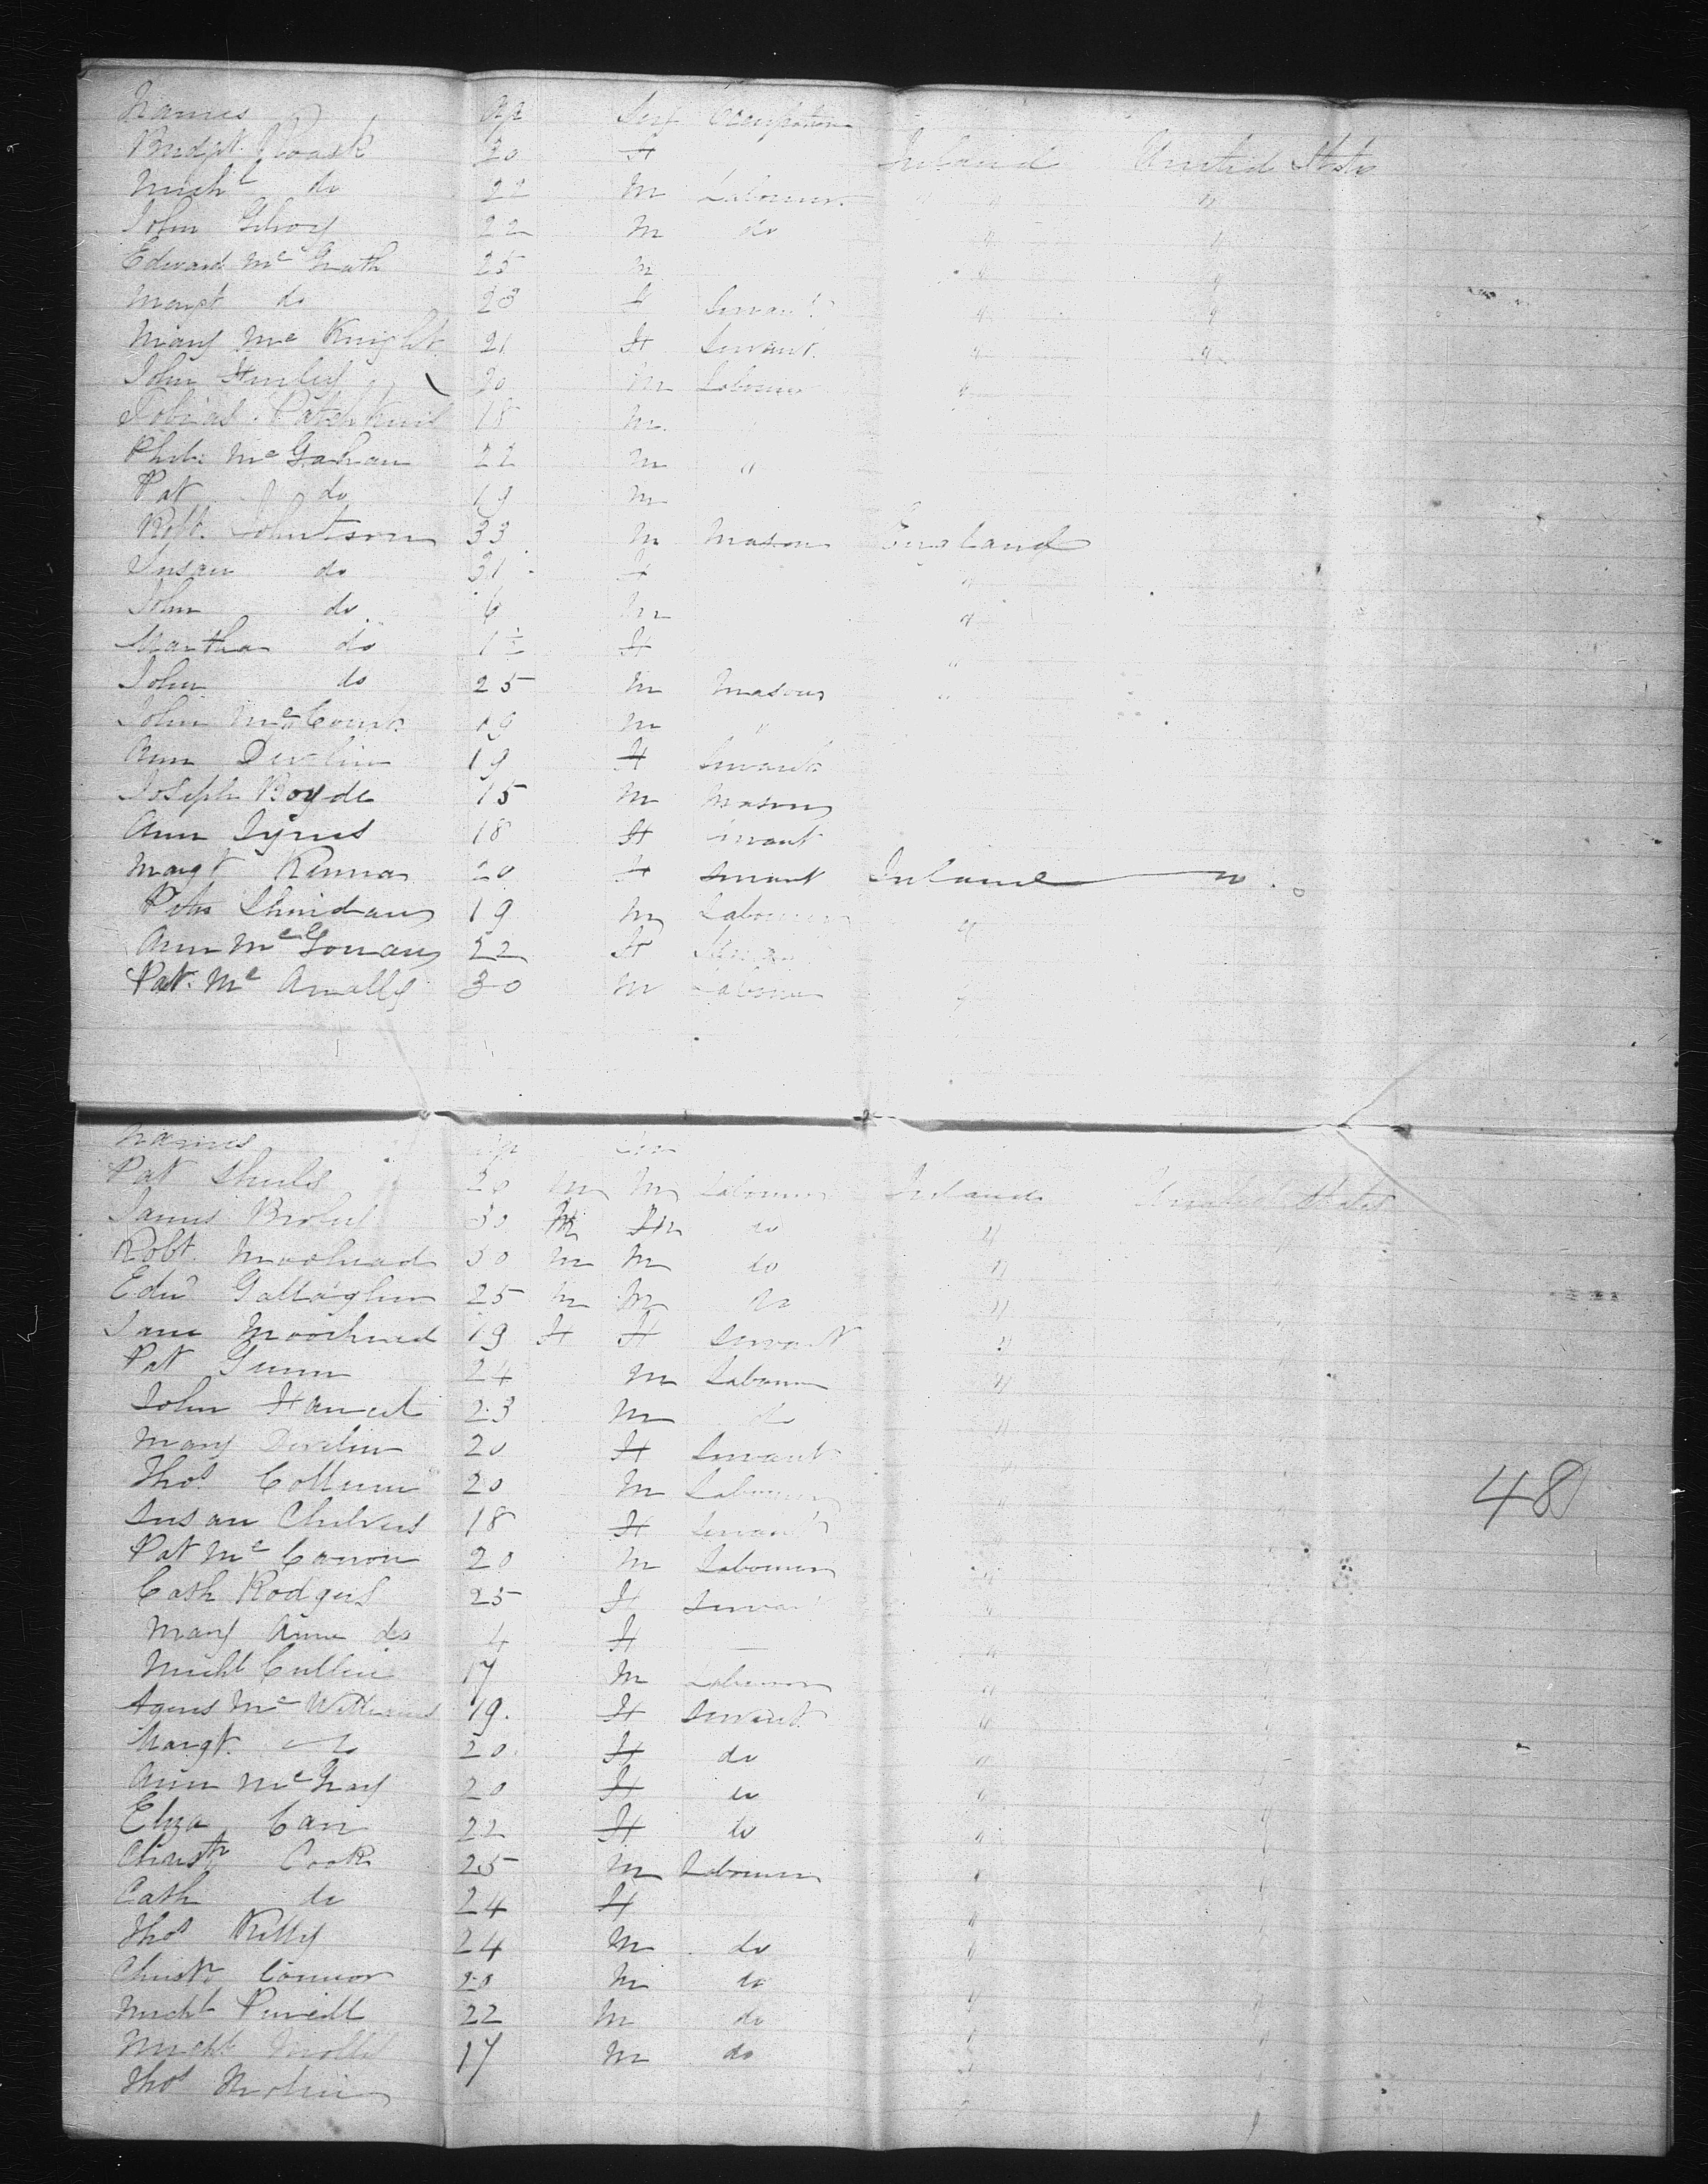 Names Age Sex Occupation
Bridgt. 20 F Ireland United States
Michl do 22 M Labourer " "
John Gilroy 22 M do " "
Edward Mc Grath 25 M " "
Margt do 23 F Servant " "
Mary Mc Knight 21 F Servant " "
John Hurley 20 M Labourer "
Tobias 18 M
Phil: Mc Gahan 22 M "
Pat do 19 M
Robt. Johntson 33 M Mason England
Susan do 31 F "
John do 6 M "
Martha do 1½ F "
John do 25 M Mason "
John Mc Court 19 M "
Ann Devlin 19 F Servant
Joseph Boyde 15 M Mason
Ann Tyrus 18 F Servant
Margt Kenna 20 F Servant Ireland "
Peter Sheridan 19 M Labourer "
Ann Mc Gowan 22 F Servant
Pat. Mc Anally 30 M Labourer "
Names Age Sex
Pat Shiels 20 M M Labourer Ireland United States
James 30 M M do " "
Robt. Moorhead 50 M M do "
Edwd Gallagher 25 M M do "
Jane Moorhead 19 F F Servant "
Pat Gunn 24 M Labourer "
John 23 M do "
Mary Devlin 20 F Servant "
Thos. Collum 20 M Labourer "
Susan Chilvers 18 F Servant "
Pat Mc Carron 20 M Labourer "
Cath Rodgers 25 F Servant "
Mary Anne do 4 F — "
Michl Cullen 17 M Labourer "
Agnes Mc Williams 19. F Servant "
Margt. do 20. F do "
Ann Mc Gray 20 F do "
Eliza Carr 22 F do " "
Christr Cook 25 M Labourer " "
Cath do 24 F " "
Thos Kelly 24 M do " "
Christr Connor 20 M do " "
Michl Purcell 22 M do " "
Michl 17 M do "
Thos
48